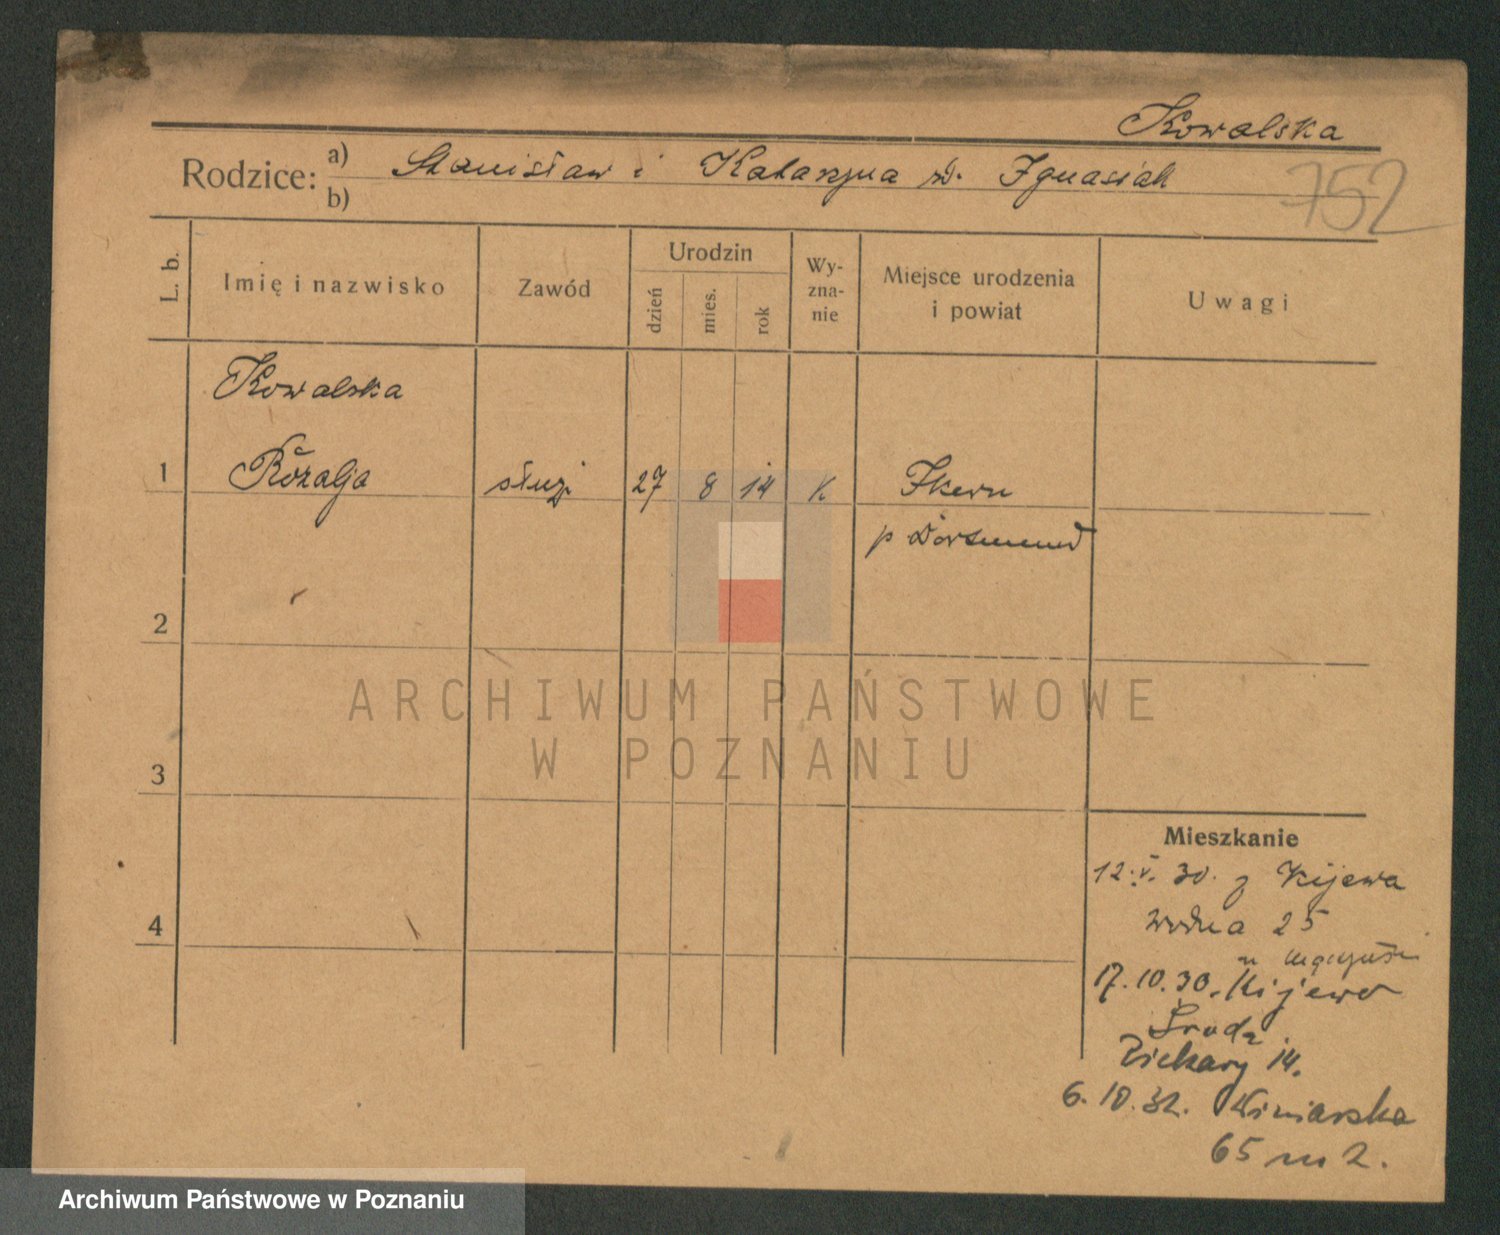 Kowalska
Rodzice: a) Stanisław i Katarzyna d. Ignasiak
b)
752
L. b.
Imię i nazwisko
Zawód
Urodzin
dzień
mies.
rok
Wy-
zna-
nie
Miejsce urodzenia
i powiat
Uwagi
Kowalska
1 Rozalja służ 27 8 14 K
p Dortmund
2
3
4
Mieszkanie
12.V.30. z Kijewa
Wodna 25
17.10.30. Kijewo
Środa
Piekary 14.
6.10.32. Winiarska
65 m 2.
ARCHIWUM PAŃSTWOWE
W POZNANIU
Archiwum Państwowe w Poznaniu